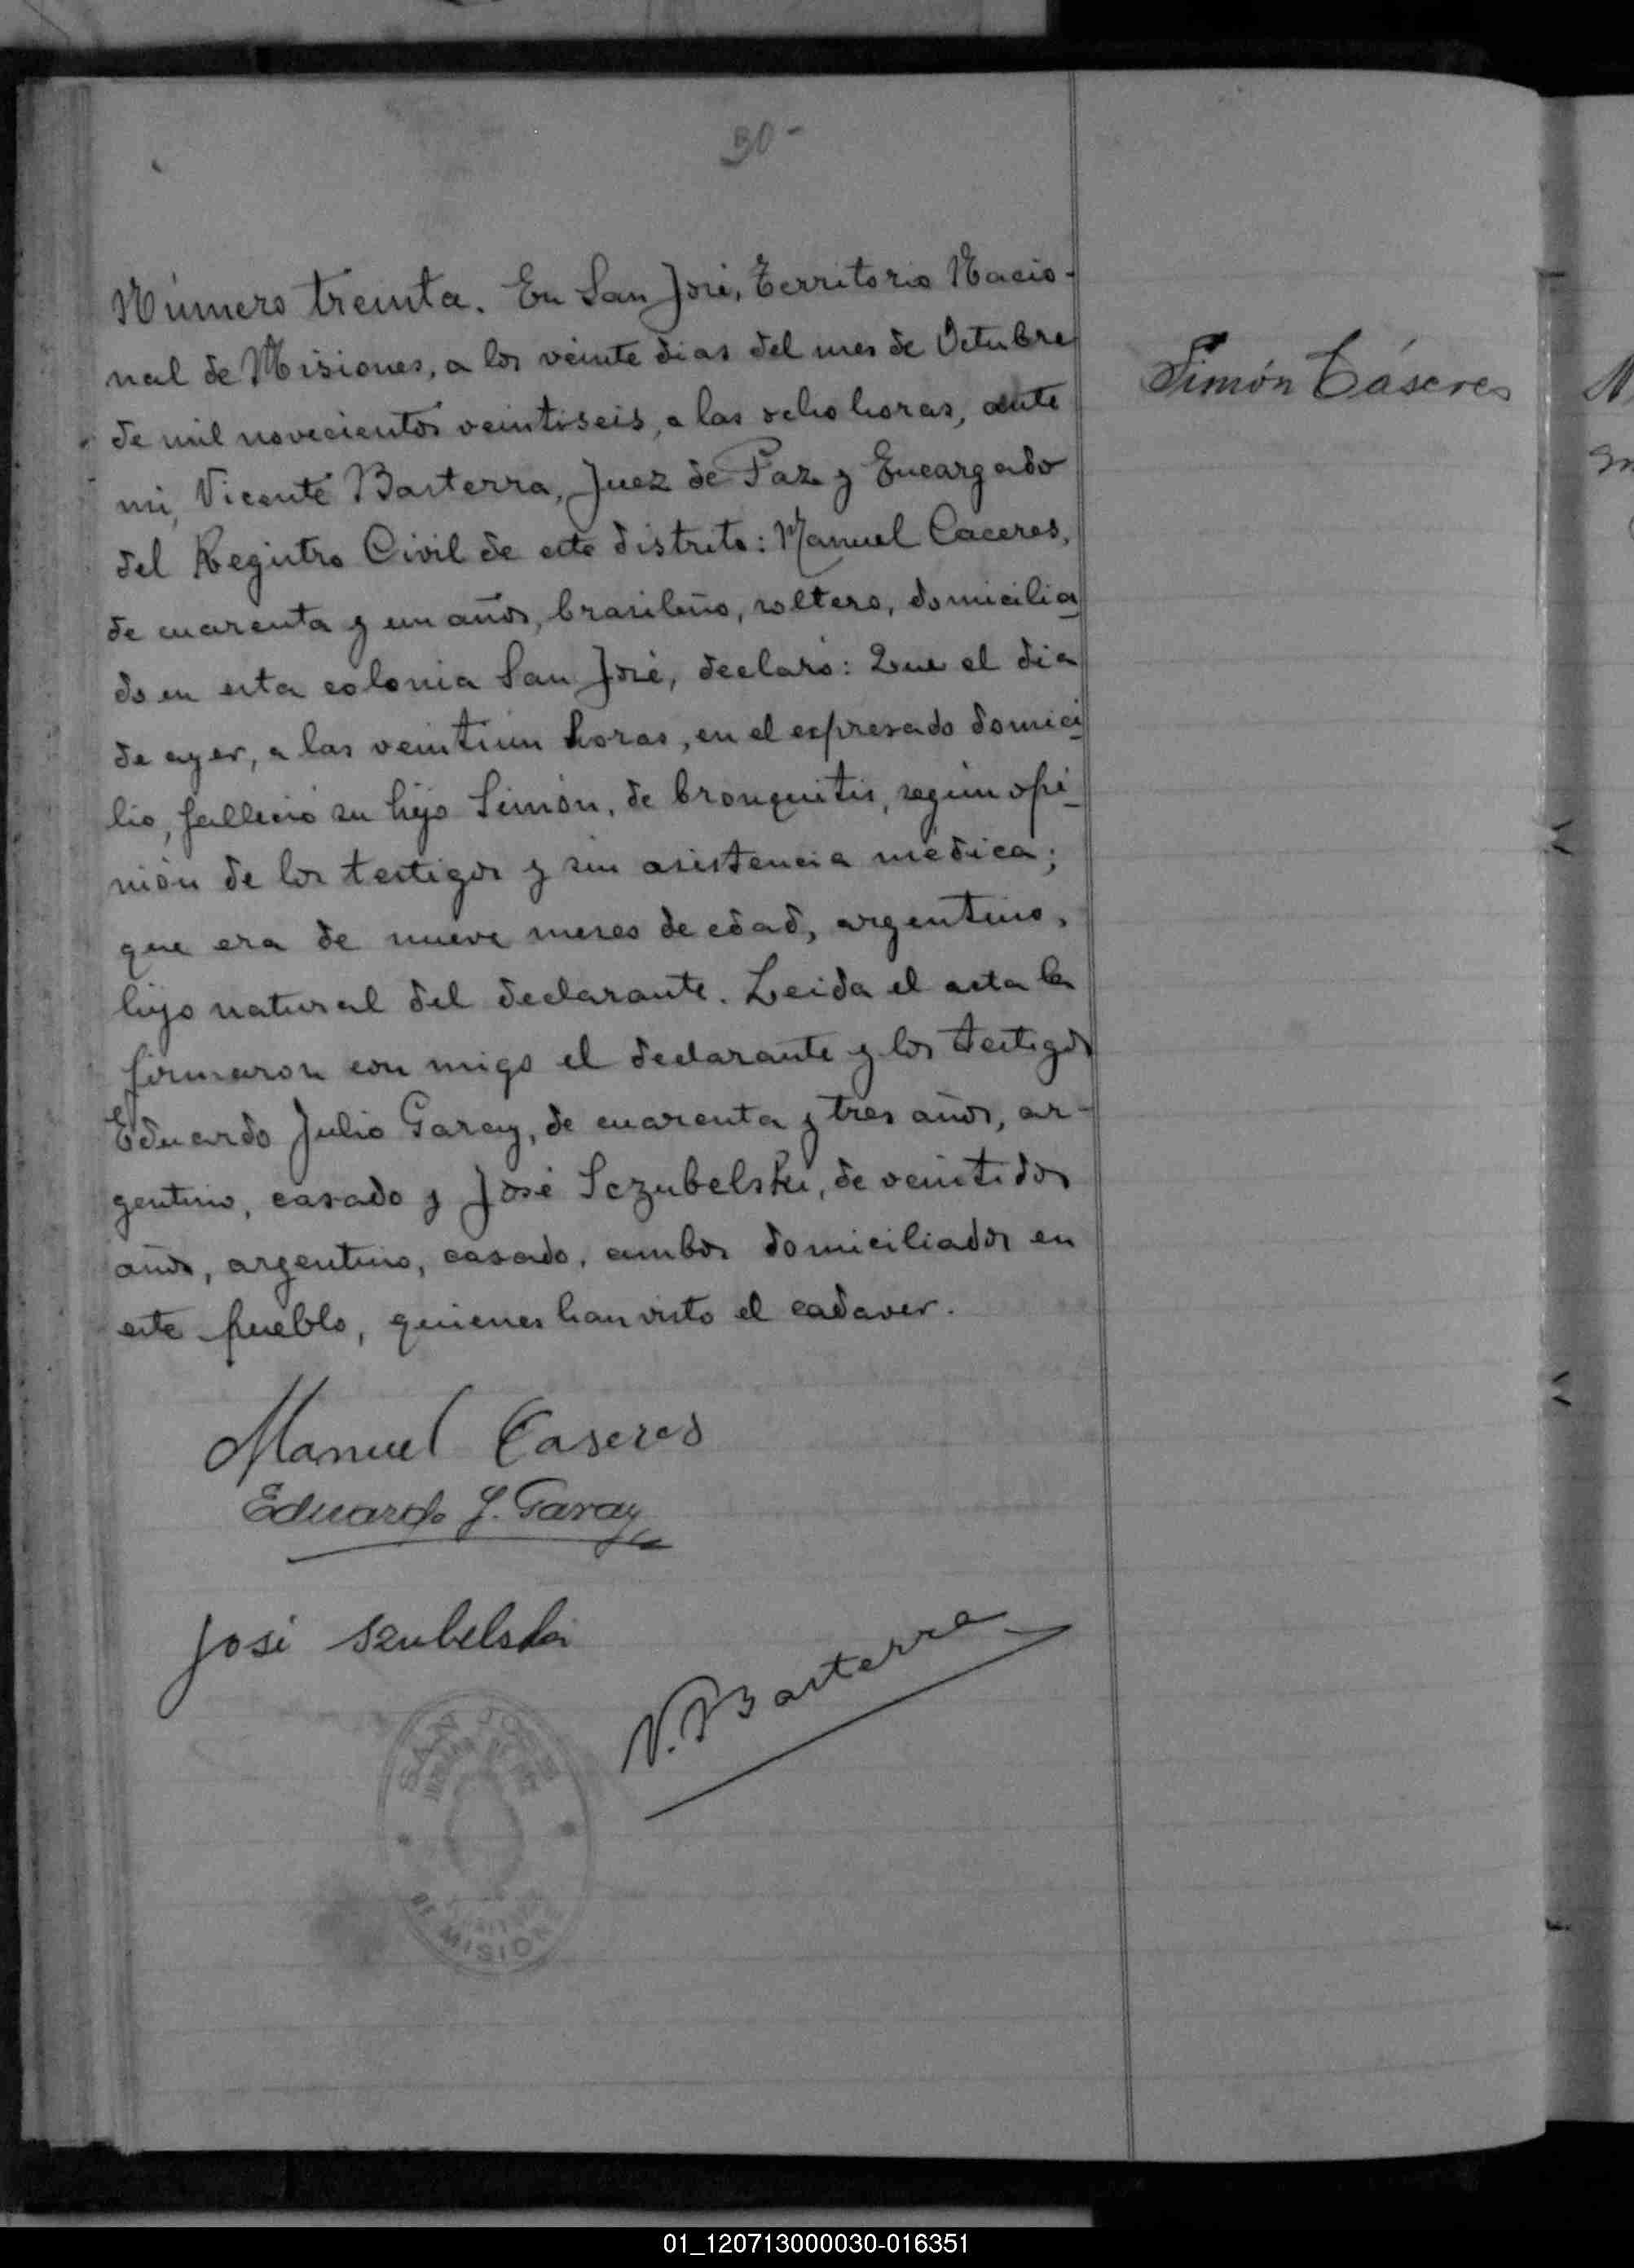 30-
Número treinta. En San José, Territorio Nacio-
nal de Misiones, a los veinte dias del mes de Octubre
Simón Cáseres
de mil novecientos veintiseis, a las ocho horas, ante
mi, Vicente Basterra, Juez de Paz y Encargado
del Registro Civil de este distrito: Manuel Caceres,
de cuarenta y un años, brasileño, soltero, domicilia
do en esta colonia San José, declaró: Que el dia
de ayer, a las veintiun horas, en el expresado domici
lio, falleció su hijo Simón, de bronquitis, según opi
nión de los testigos y sin asistencia médica;
que era de nueve meses de edad, argentino,
hijo natural del declarante. Leida el acta la
firmaron con migo el declarante y los testigos
Eduardo Julio Garay, de cuarenta y tres años, ar-
gentino, casado y José Sczubelski, de veintidos
años, argentino, casado, ambos domiciliados en
este pueblo, quienes han visto el cadaver.
Manuel Caseres
Eduardo J. Garay
José Szubelski
V. Basterra
SAN JOSE
DE MISIONE
01_120713000030-016351